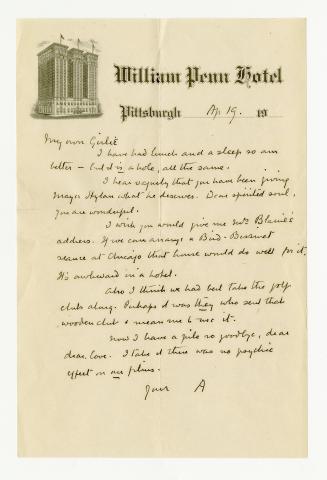 William Penn Hotel
Pittsburgh Ap 19. 19
My own Girlie
I have had lunch and a sleep so am
better – but it is a hole, all the same.
I hear vaguely that you have been giving
Mayor Hylan what he deserves. Dear spirited soul,
you are wonderful.
I wish you would give me Mrs Blaine's
address. If we can arrange a Bird-Bessinet
seance at Chicago that house would do well for it,
It's awkward in a hotel.
Also I think we had best take the golf
clubs along. Perhaps it was they who sent that
wooden club & mean me to use it.
Now I have a pile so goodbye, dear
dear love. I take it there was no psychic
effect on our films.
Your A